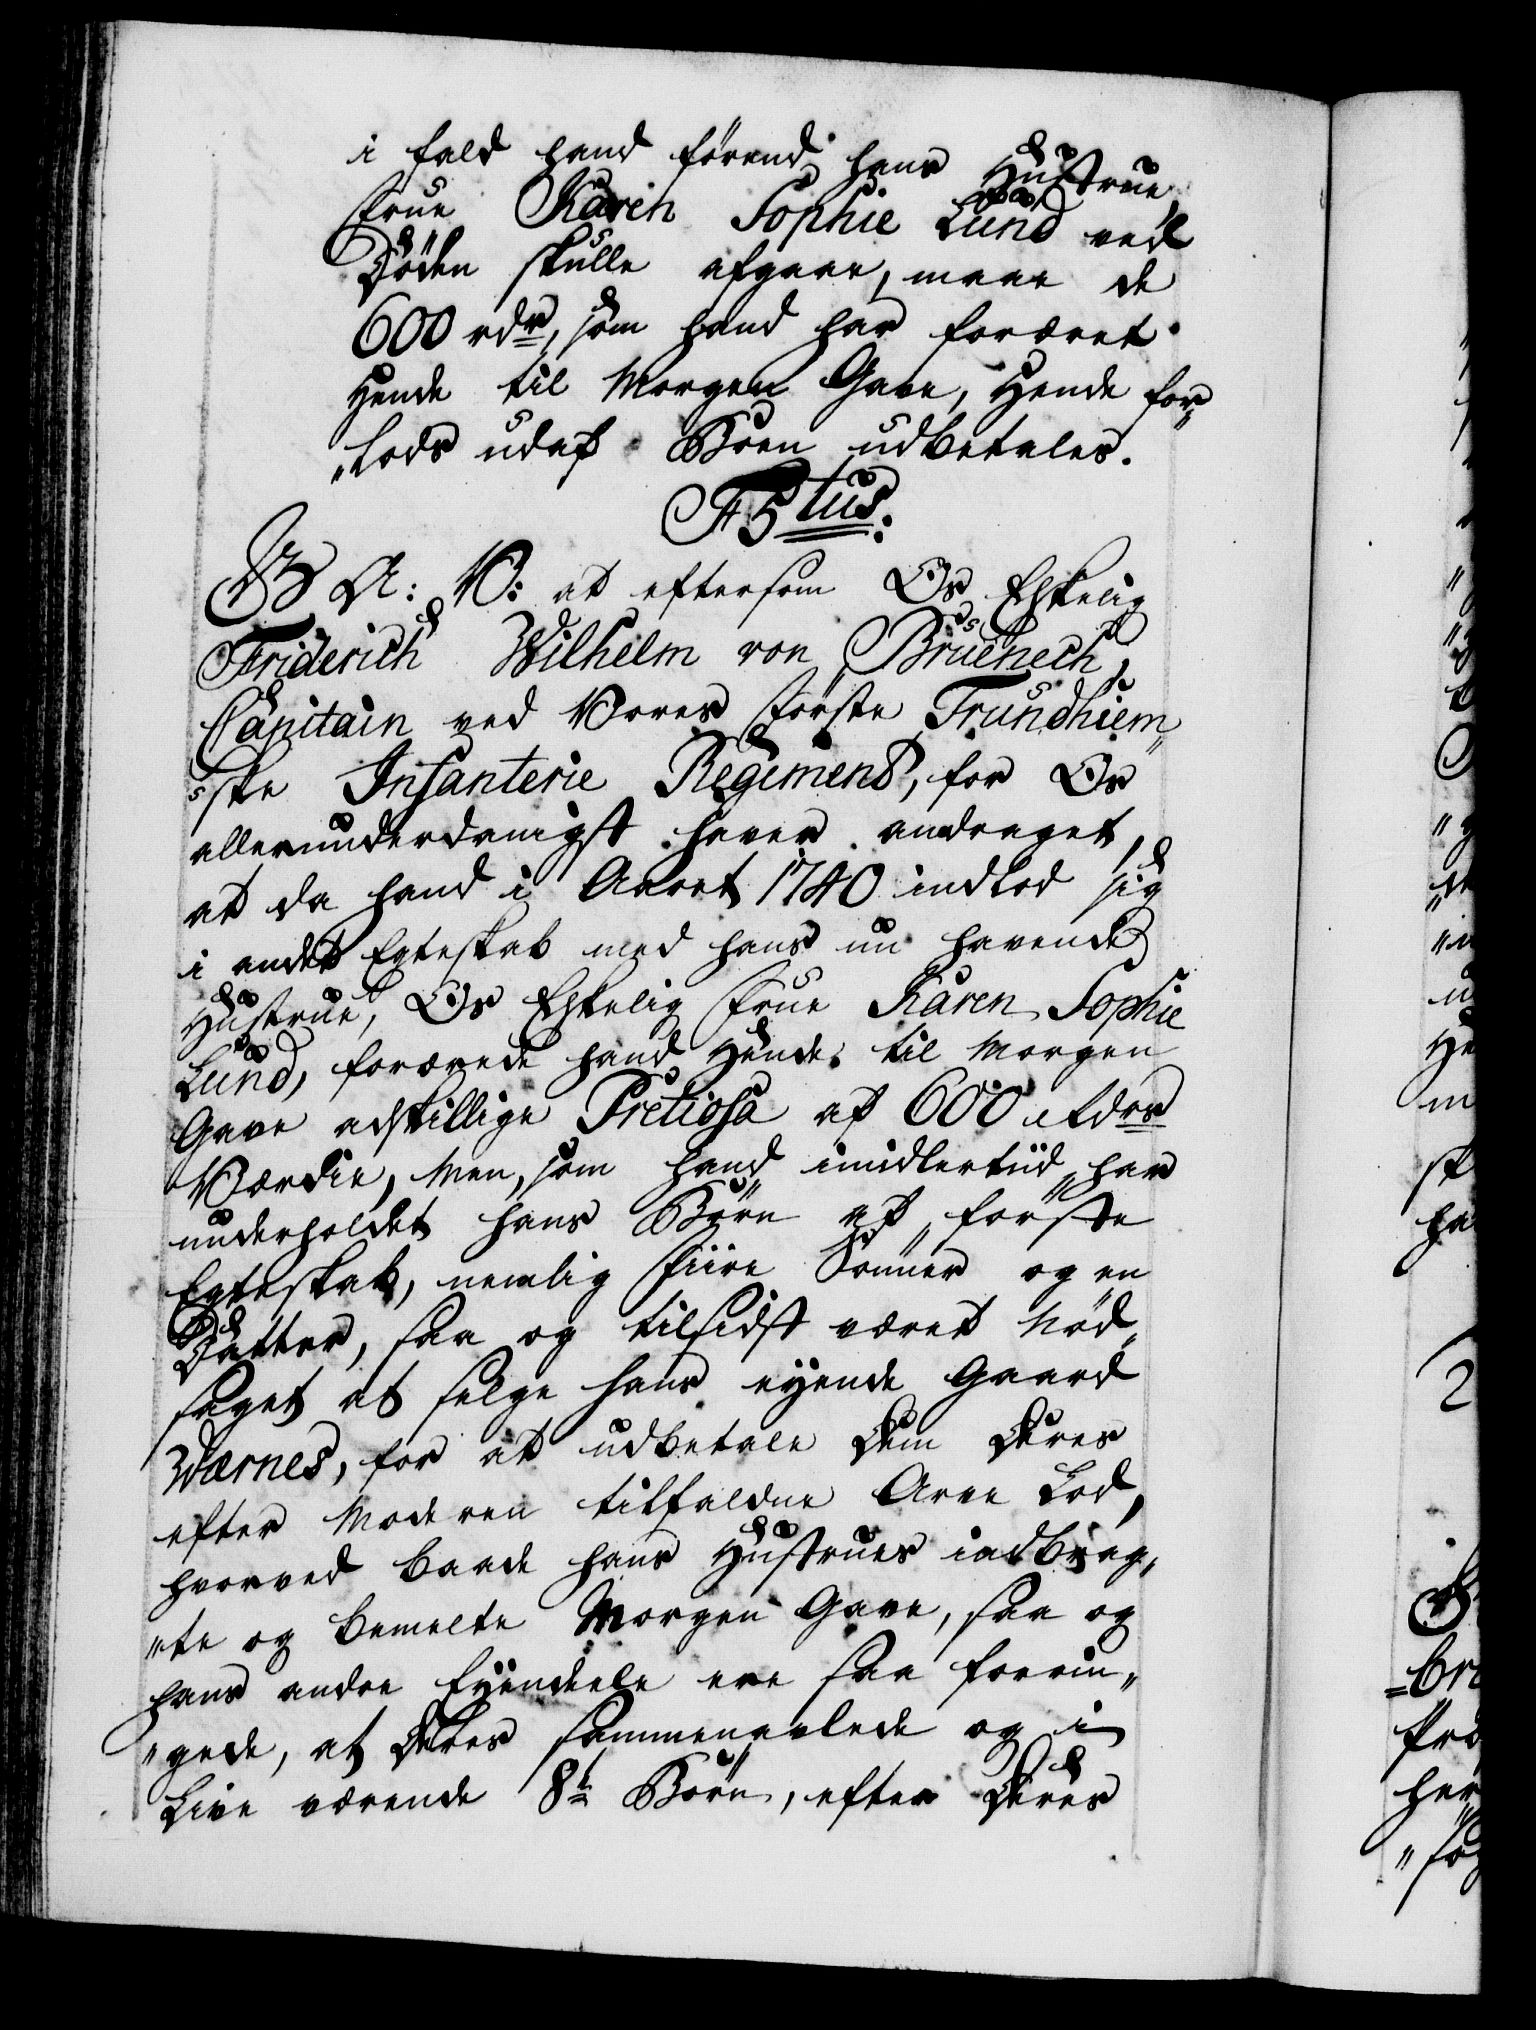 i fald hand förend hans Hustrue,
Frue Karen Sophie Lund ved
Döden skulle afgaae, maae de
600 rdr, som hand har foræret
Hende til Morgen Gave, Hende for„
„lods udaf Boen udbetales.
F 5tus.
G A: V: at eftersom Os Elskelig
Friderich Wilhelm von Bruenech,
Capitain ved Vores Förste Trundhiem„
„ske Infanterie Regiment, for Os
allerunderdanigst haver andraget,
at da hand i Aaret 1740 indlod sig
i andet Egteskab med hans nu havende
Hustrue, Os Elskelig Frue Karen Sophie
Lund, forærede hand Hende til Morgen
Gave adskillige Pretiosa af 600 rdrs
Værdie, Men, som hand imidlertiid har
underholdet hans Börn af förste
Egteskab, nemlig Fiire Sönner og en
Datter, saa og tilsidst været Nöd„
saget at selge hans eyende Gaard
Wærnes, for at udbetale Dem Deres
efter Moderen tilfaldne Arve Lod,
hvorved baade hans Hustrues indbrag„
„te og bemelte Morgen Gave, saa og
hans andre Eyendeele ere saa forrin„
„gede, at Deres sammenavlede og i
Live værende 8te Börn, efter Deres